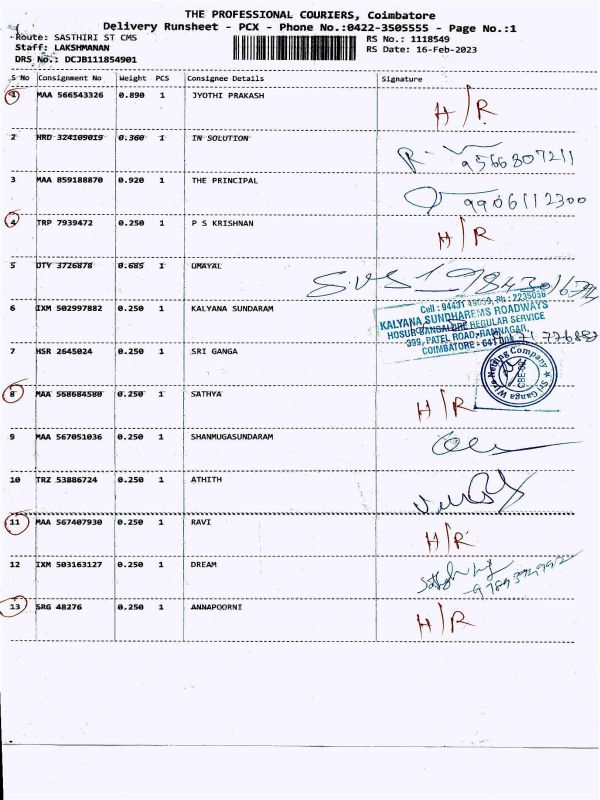 THE PROFESSIONAL COURIERS, Coimbatore
Delivery Runsheet - PCX - Phone No.:0422-3505555 - Page No.:1
Route: SASTHIRI ST CMS
RS No.: 1118549
Staff: LAKSHMANAN
RS Date: 16-Feb-2023
DRS No.: DCJB111854901
S No Consignment No Weight PCS Consignee Details Signature
1 MAA 566543326 0.890 1 JYOTHI PRAKASH H/R
2 HRD 324109019 0.360 1 IN SOLUTION 9566807211
3 MAA 859188870 0.920 1 THE PRINCIPAL 9906112300
4 TRP 7939472 0.250 1 P S KRISHNAN H/R
5 DTY 3726878 0.685 1 UMAYAL SVS
6 IXM 502997882 0.250 1 KALYANA SUNDARAM
Cell : 94431 49059, Ph : 2235056
KALYANA SUNDHAREMS ROADWAYS
HOSUR BANGALORE REGULAR SERVICE
399, PATEL ROAD, RAMNAGAR,
COIMBATORE - 641
7 HSR 2645024 0.250 1 SRI GANGA
Sri Ganga Wire Netting Company
CBE
8 MAA 568684580 0.250 1 SATHYA H/R
9 MAA 567051036 0.250 1 SHANMUGASUNDARAM
10 TRZ 53886724 0.250 1 ATHITH
11 MAA 567407930 0.250 1 RAVI H/R
12 IXM 503163127 0.250 1 DREAM
13 SRG 48276 0.250 1 ANNAPOORNI H/R